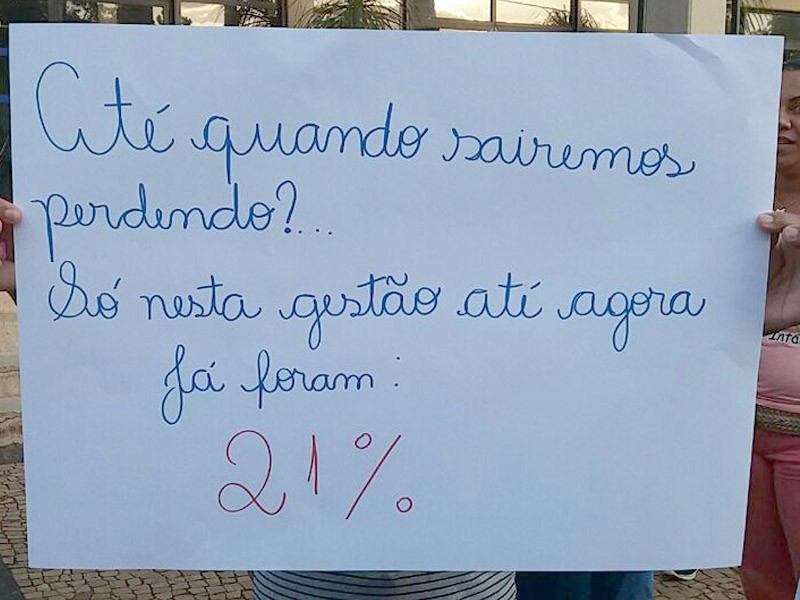 Até quando sairemos
perdendo?...
Só nesta gestão até agora
Já foram:
21%